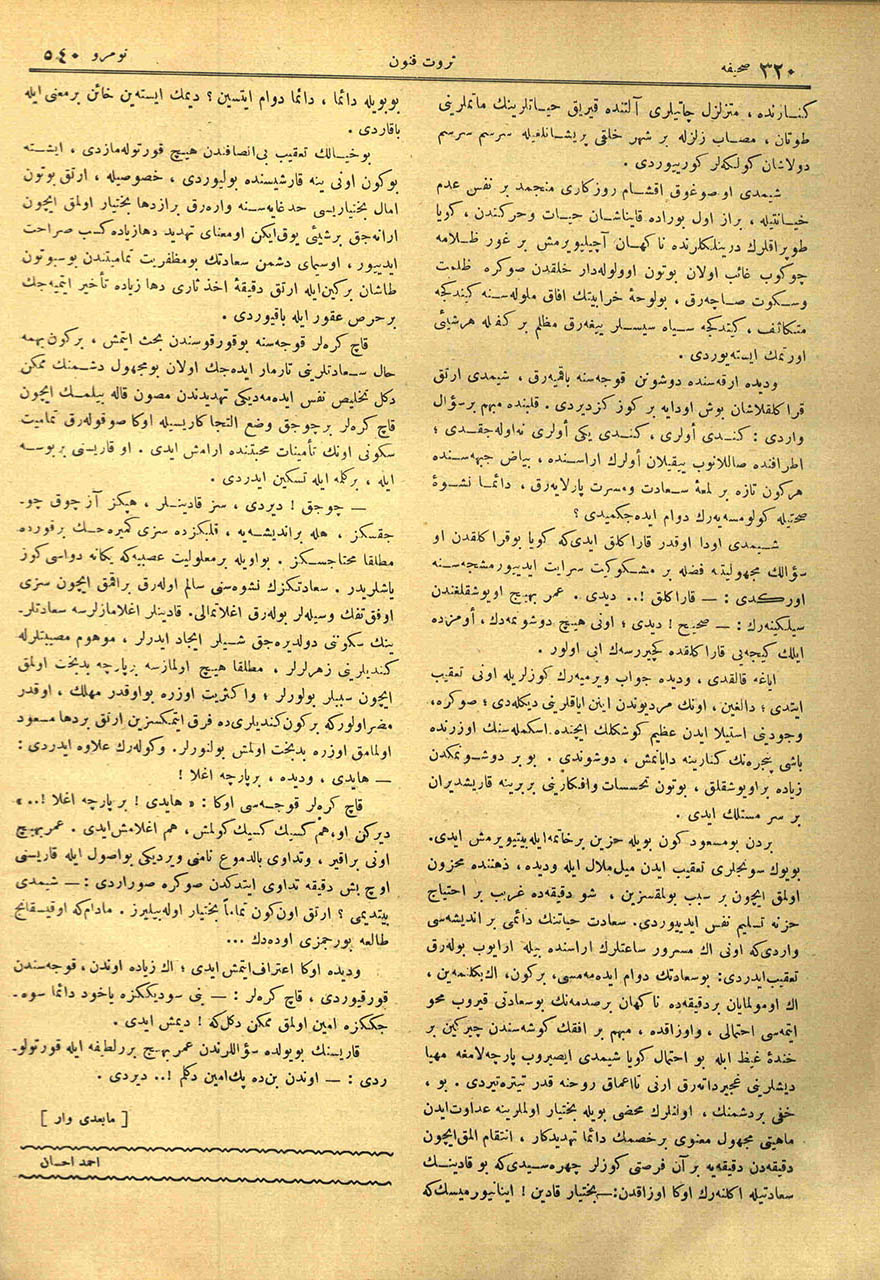 صحیفه ٣٢٠
ثروت فنون
نومرو ٥٤٠
كنارنده ، متزلزل چاتیلری آلتنده قیریق حیاتلرینك ماتملرینی
طوتان ، مصاب زلزله بر شهر خلقی پریشانلغیله سرسم سرسم
دولاشان كولكه‌لر كورییوردی .
شیمدی او صوغوق اقشام روزكاری منجمد بر نفس عدم
خیانتیله ، براز اول بوراده قایناشان حیات وحركتدن ، كویا
طوپراقلرك درینلكلرنده ناكهان آچیلیویرمش بر غور ظلامه
چوكوب غائب اولان بوتون اوولوله‌دار خلقدن صوكره ظلمت
وسكوت صاچه‌رق ، بولوحۀ خرابیتك افاق ملوله‌سنه كیتدكجه
متكاثف ، كیتدكجه سیاه سیسلر ییغه‌رق مظلم بر كفنله هرشیئی
اورتمك ایسته‌یوردی .
ودیده ارقه‌سنده دوشونن قوجه‌سنه باقمیه‌رق ، شیمدی ارتق
قراكلقلاشان بوش اودایه بر كوز كزدیردی . قلبنده مبهم برسؤال
واردی : كندی أولری ، كندی یكی أولری نه‌اوله‌جقدی ؛
اطرافنده صاللانوب ییقیلان أولرك اراسنده ، بیاض جبهه‌سنده
هركون تازه بر لمعۀ سعادت ومسرت پارلایه‌رق ، دائما نشوۀ
صحتیله كولومسه‌یه‌رك دوام ایده‌جكمیدی ؟
شیمدی اودا اوقدر قاراكلق ایدی‌كه كویا بوقراكلقدن او
سؤالك مجهولیتنه فضله بر مشكوكیت سرایت ایدییورمشجه‌سنه
اوركدی : — قاراكلق !.. دیدی . عمر بهیج اویوشقلغندن
سیلكینه‌رك : — صحیح ! دیدی ؛ اونی هیچ دوشونمه‌دك ، أومزده
ایلك كیجه‌یی قاراكلقده كچیررسه‌ك ایی اولور .
ایاغه قالقدی ، ودیده جواب ویرمیه‌رك كوزلریله اونی تعقیب
ایتدی ؛ دالغین ، اونك مردیوندن اینن ایاقلرینی دیكله‌دی ؛ صوكره،
وجودینی استیلا ایدن عظیم كوشكلك ایچنده. اسكمله‌سنك اوزرنده
باشی پنجره‌نك كنارینه دایانمش ، دوشوندی . بو بر دوشونمكدن
زیاده براویوشقلق ، بوتون تحسسات وافكارینی بربرینه قاریشدیران
بر سر مستلك ایدی .
بردن بومسعود كون بویله حزین برخاتمه‌ایله بیتیویرمش ایدی.
بویوك سونجلری تعقیب ایدن میل ملال ایله ودیده ، ذهننده محزون
اولمق ایچون بر سبب بولمقسزین ، شو دقیقه‌ده غریب بر احتیاج
حزنه تسلیم نفس ایدییوردی. سعادت حیاتنك دائمی بر اندیشه‌سی
واردی‌كه اونی اك مسرور ساعتلرك اراسنده بیله ارایوب بوله‌رق
تعقیب ایدردی: بوسعادتك دوام ایده‌مه‌مسی، بركون، اك بكلنمه‌ین ،
اك اومولمایان بردقیقه‌ده ناكهان برصدمه‌نك بوسعادتی قیروب محو
ایتمه‌سی احتمالی ، واوزاقده ، مبهم بر افقك كوشه‌سندن چیركین بر
خندۀ غیظ ایله بو احتمال كویا شیمدی ایصیروب پارچه‌لامغه مهیا
دیشلرینی غجیرداته‌رق ارنی تااعماق روحنه قدر تیتره‌تیردی . بو ،
خفی بردشمنك ، اوانلرك محضی بویله بختیار اولملرینه عداوت‌ایدن
ماهیتی مجهول معنوی برخصمك دائما تهدیدكار ، انتقام المق‌ایچون
دقیقه‌دن دقیقه‌یه بر آن فرصتی كوزلر چهره‌سیدی‌كه بو قادینك
سعادتیله اكلنه‌رك اوكا اوزاقدن:— بختیار قادین ! اینانیورمیسك‌كه
بوبویله دائما ، دائما دوام ایتسین ؟ دیمك ایسته‌ین خائن برمعنی ایله
باقاردی .
بوخیالك تعقیب بی‌انصافندن هیچ قورتوله‌مازدی ، ایشته
بوكون اونی ینه قارشیسنده بولیوردی ، خصوصیله ، ارتق بوتون
امال بختیاریسی حد غایه‌سنه واره‌رق برازدها بختیار اولمق ایچون
ارانه‌جق برشیئی یوق‌ایكن اومعنای تهدید دهازیاده كسب صراحت
ایدییور ، اوسیمای دشمن سعادتك بومظفریت تمامیتندن بوسبوتون
طاشان بركین‌ایله ارتق دقیقۀ اخذ ثاری دها زیاده تأخیر ایتمیه‌جك
برحرص عقور ایله باقیوردی .
قاچ كره‌لر قوجه‌سنه بوقورقوسندن بحث ایتمش ، بركون بهمه
حال سعادتلرینی تارمار ایده‌جك اولان بومجهول دشمنك ممكن
دكل تخلیص نفس ایده‌مه‌دیكی تهدیدندن مصون قاله بیلمك ایچون
قاچ كره‌لر برچوجق وضع التجاكاریسیله اوكا صوقوله‌رق تمامیت
سكونی اونك تأمینات محبتنده ارامش ایدی . او قاریسنی بربوسه
ایله ، بركلمه ایله تسكین ایدردی .
— چوجق ! دیردی ، سز قادینلر ، هپكز آز چوق چو-
جقكز ، هله براندیشه‌یه ، قلبكزده سزی كمیره‌جك برقورده
مطلقا محتاجسكز . بواویله برمعلولیت عصبیه‌كه یكانه دواسی كوز
یاشلریدر . سعادتكزك نشوه‌سنی سالم اوله‌رق براقمق ایچون سزی
اوفق تفك وسیله‌لر بوله‌رق اغلاتمالی. قادینلر اغلامازلرسه سعادتلر-
ینك سكوتنی دولدیره‌جق شیلر ایجاد ایدرلر ، موهوم مصیبتلرله
كندیلرینی زهرلرلر ، مطلقا هیچ اولمازسه برپارچه بدبخت اولمق
ایچون سببلر بولورلر ؛ واكثریت اوزره بواوقدر مهلك ، اوقدر
مضر اولوركه بركون كندیلری‌ده فرق ایتمكسزین ارتق بردها مسعود
اولمامق اوزره بدبخت اولمش بولنورلر. وكوله‌رك علاوه ایدردی :
— هایدی ، ودیده ، برپارچه اغلا !
قاچ كره‌لر قوجه‌سی اوكا : « هایدی ! برپارچه اغلا !.. »
دیركن او، هم كسیك كسیك كولمش ، هم اغلامش‌ایدی . عمربهیج
اونی براقیر ، وتداوی بالدموع نامنی ویردیكی بواصول ایله قاریسنی
اوچ بش دقیقه تداوی ایتدكدن صوكره صوراردی :— شیمدی
بیتدیمی ؟ ارتق اون‌كون تماماً بختیار اوله‌بیلیرز . مادام‌كه اوقیصقانج
طالعه بورجمزی اوده‌دك ...
ودیده اوكا اعتراف‌ایتمش ایدی ؛ اك زیاده اوندن ، قوجه‌سندن
قورقیوردی ، قاچ كره‌لر : — بنی سودیككزه یاخود دائما سوه-
جككزه امین اولمق ممكن دكل‌كه ! دیمش ایدی .
قاریسنك بویولده سؤاللرندن عمربهیج بررلطیفه ایله قورتولو-
ردی : — اوندن بن‌ده پك‌امین دكلم !.. دیردی .
[ مابعدی وار ]
احمد احسان